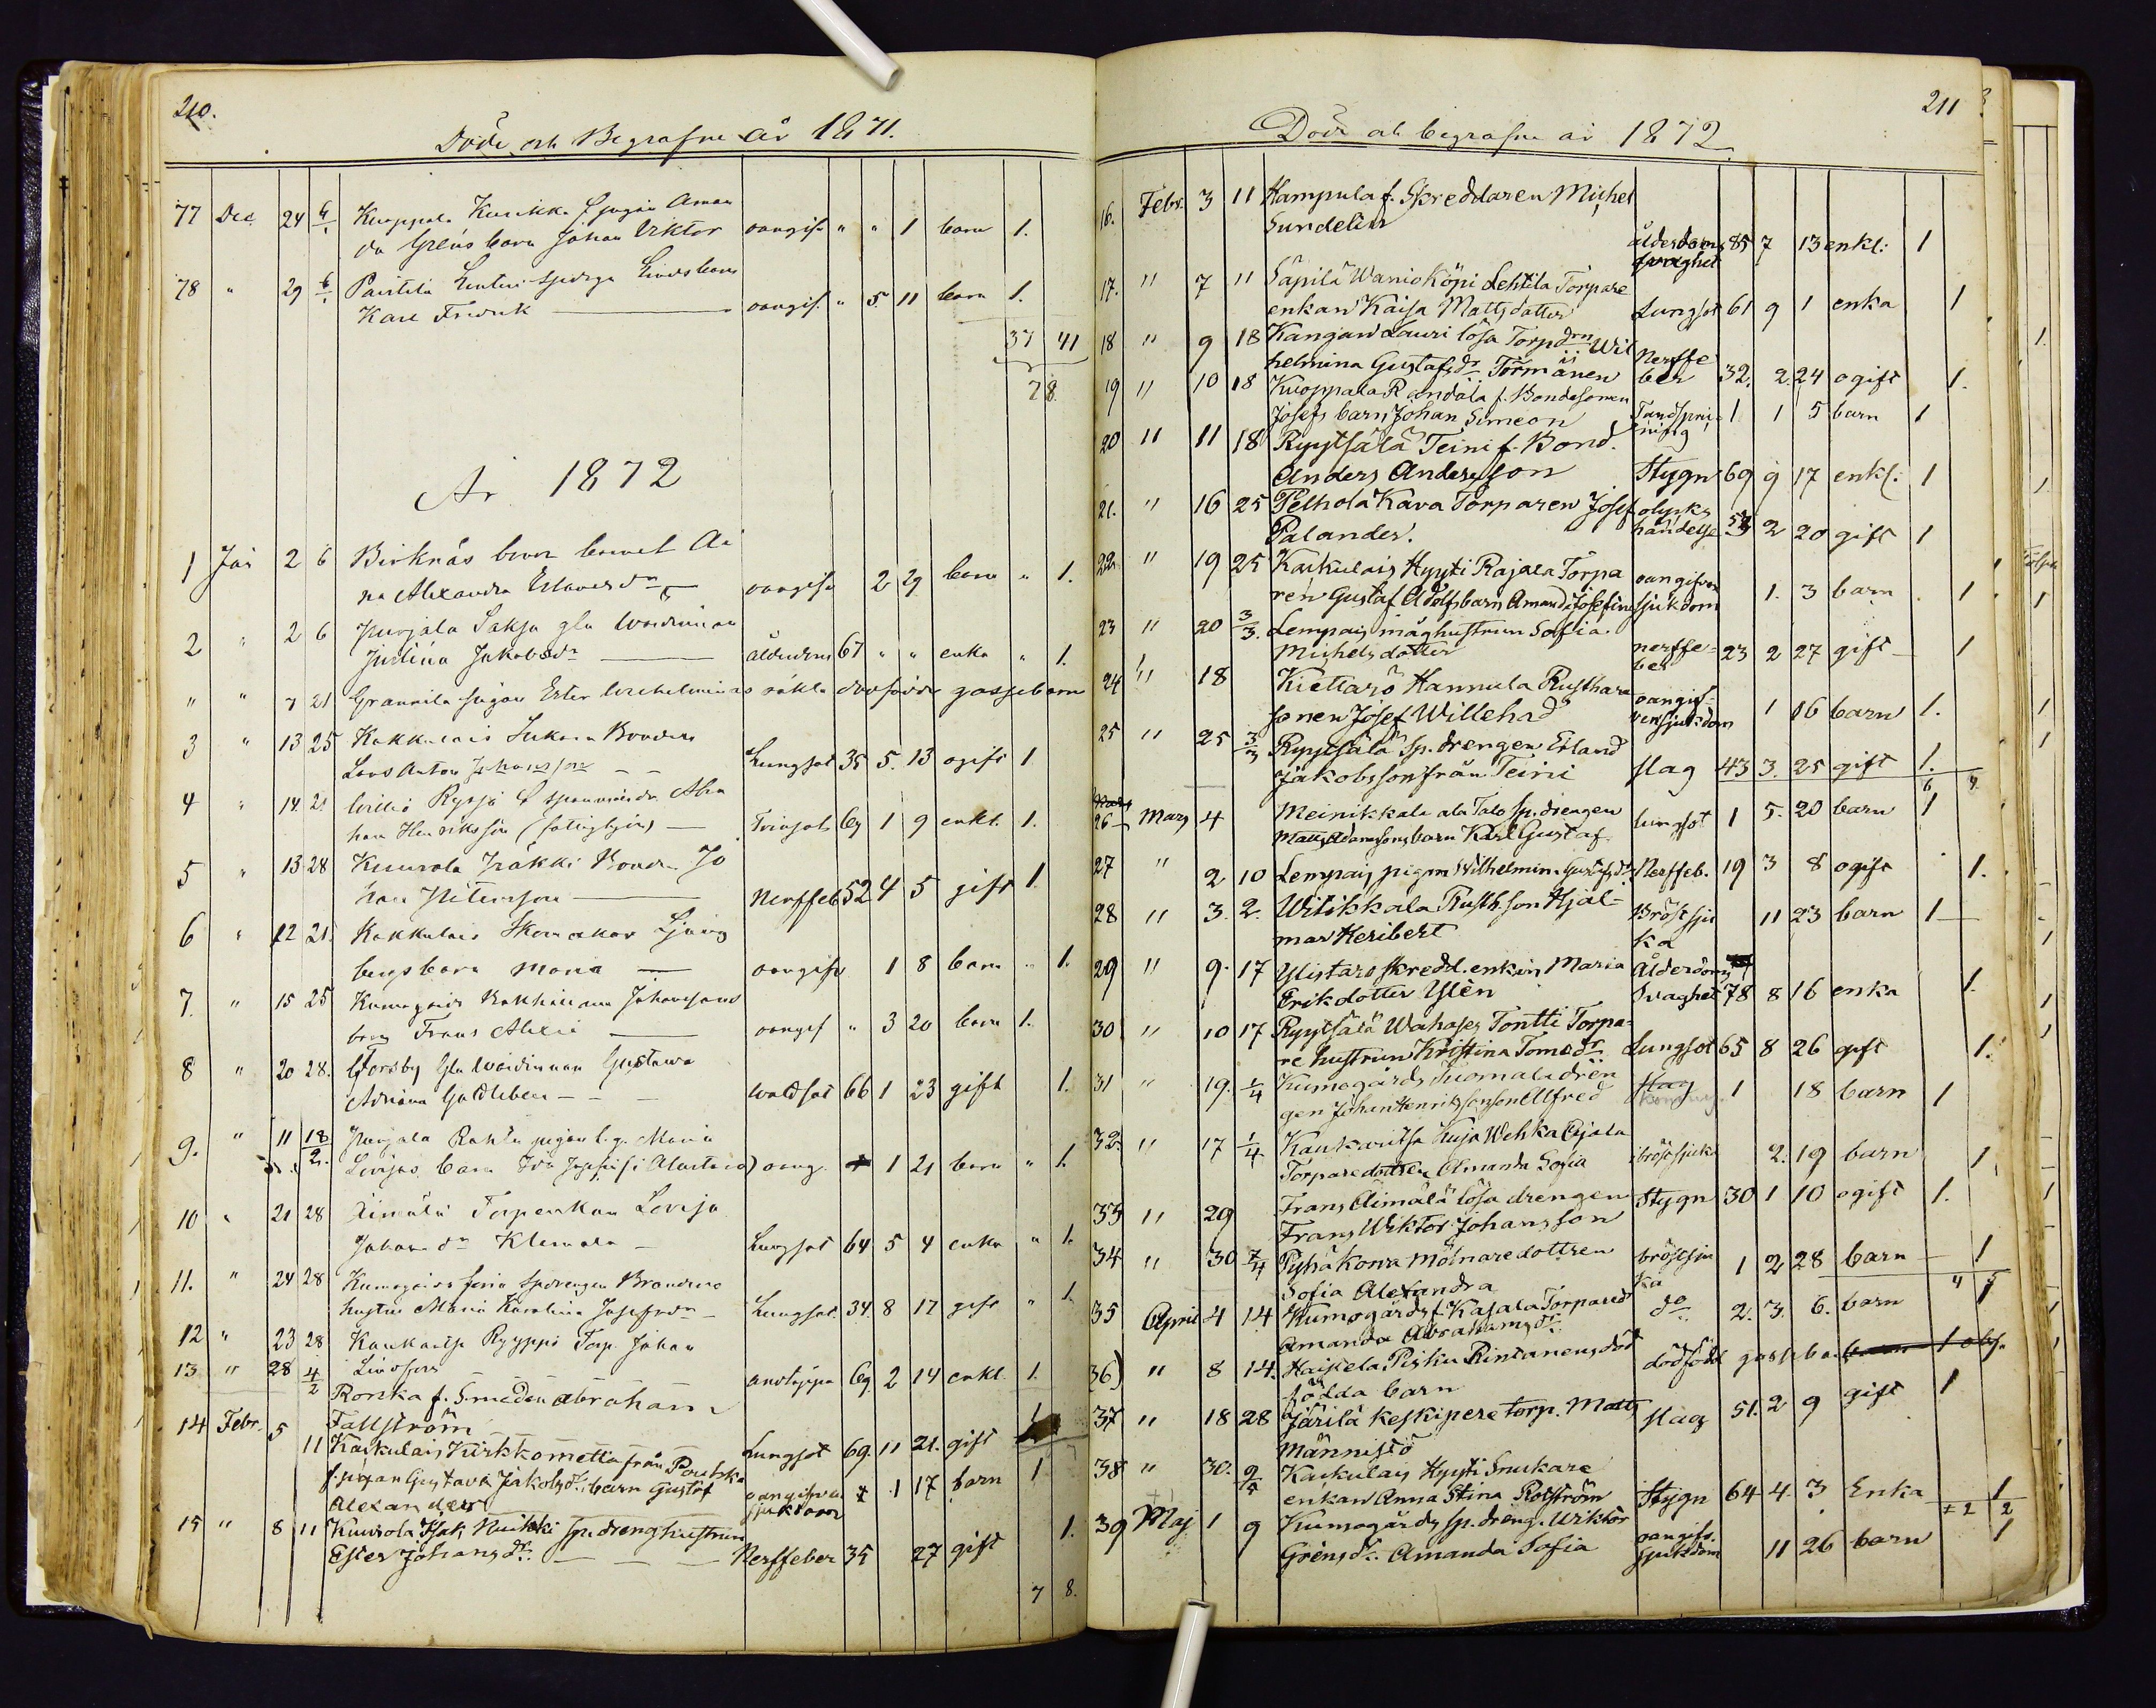 210.
Döde och Begrafne år 1871.
77 Dec. 24 6/1 Kuoppala Kurikka f. pigan Aman
da Gréns barn Johan Viktor oangifv " " 1 barn 1.
78 " 29 6/1
Karl Fredrik oangif. " 5 11 barn 1.
37 41
78.
År 1872
1 Jan 2 6 Birknäs barnet Ai
na Alexandra oangifv 2 29 barn " 1.
2 " 2 6 Punjala Saksa
Justina Jakobsdr ålderdom 67 " " enka " 1.
" " 7 21 Grannila pigan Ester Wilhelminas oäkta dödfödde gossebarn
3 " 13 25 Kakkulais
Lars Anton Johansson Lungsot 35 5. 13 ogift 1
4 " 14 21 Abra
ham Henriksson (fattighjon) Tvinsot 69 1 9 enkl. 1.
5 " 13 28 Kuurola Jräkki Bonden Jo
han Petersson Nerffeb 52 4 5 gift 1.
6 " 12 21. Kakkulais Skomakar Ljung
bergs barn Maria oangifv 1 8 barn " 1.
7. " 15 25 Kumogårds Johanssons
barn Frans Alexis oangif " 3 20 barn 1.
8 " 20 28. Forsby Gustava
Adriana Gaddleben wattsot 66 1 23 gift 1.
9. " 11 18/2. Punjala pigan Maria
Lovisas barn oang. 1 21 barn " 1.
10 " 21 28 Äimälä Torpenkan Lovisa
Johansdr Klemola Lungsot 64 5 4 enka " 1.
11. " 24 28 Kumogårds spdrengen
hustru Maria Karolina Josefsdr Lungsot 34. 8 17 gift " 1.
12 " 23 28 Kaukaritsa Ryyppö Torp. Johan
Lindfors andtäppa 69. 2 14 enkl. 1.
13 " 28 4/2 Ronka f. Smeden Abraham
Fällström Lungsot 69. 11 21. gift
14 Febr. 5 11 Kaukulais Kirkkometta från Pouhka
f. pigan Gustava Jakobsdr: barn Gustaf
Alexander oangifven sjukdom 1 17 barn 1
15 " 8 11 Kuurola Isak Nuikki sp. drenghustrun
Ester Johansdr: Nerffeber 35 27 gift 1.
7 8.
211
Döde och begrafne år 1872.
16. Febr. 3 11 Hampula f. Skreddaren Michel
Sundelin ålderdoms svaghet 85 7 13 enkl: 1
17. " 7 11 Säpilä Wanioköpi Lehtila Torpare
enkan Kaisa Mattsdotter Lungsot 61 9 1 enka 1
18 " 9 18 Kangan Lauri lösa Torpdrn Wil
helmina Gustafsdr Törmänen Nerffe ber 32. 2. 24 ogift 1.
19 " 10 18 Kuoppala Randala f. Bondesonen
Josefs barn Johan Simeon Tandspric ning 1 1 5 barn 1
20 " 11 18 Ryytsälä Teini f. Bond.
Anders Andersson Stygn 69 9 17 enkl: 1
21. " 16 25 Pelhola Kava Torparen Josef
Palander. olycks händelse 53 2 20 gift 1
22 " 19 25 Kaukulais Hyyti Rajala Torpa
ren Gustaf Adolfs barn Amanda Josefina oangifven sjukdom 1. 3 barn 1
23 " 20 3/3. Lempais måghustrun Sofia
Michelsdotter nerffe= ber 23 2 27 gift 1
24 " 18 Kiettarö Hannula Rusthare
sonen Josef Willehad oangif ven sjukdom 1 16 barn 1.
25 " 25 3/3 Ryytsälä sp. drengen Erland
Jakobsson från Teini slag 43 3. 25 gift 1.
6 4
26 Mars 4 Meinikkala ala Talo sp. drengen
Matts Adamssons barn Karl Gustaf lungsot 1 5. 20 barn 1
27 " 2 10 Lempais pigan Wilhelmina Gustafsdr Nerffeb. 19 3 8 ogift 1.
28 " 3. 2. Witikkala Rusthson Hjal-
mar Heribert Bröstsju ka 11 23 barn 1
29 " 9. 17 Ylistaro skredd. enkan Maria
Eriksdotter Ylén Ålderdoms Svaghet 78 8 16 enka 1.
30 " 10 17 Ryytsälä Wahases Tontti Torpa=
re hustrun Kristina Tomasdr: Lungsot 65 8 26 gift 1.
31 " 19. 1/4 Kumogårds Suomala dren
gen Johan Henrikssons son Alfred 1 18 barn 1
32. " 17 1/4 Kaukaritsa Kuja Wehka Ojala
Torparedottren Amanda Sofia bröstsjuka 2. 19 barn 1
33 " 29 Frans Äimälä lösa drengen
Frans Wiktor Johansson Stygn 30 1 10 ogift 1.
34 " 30 7/4 Pyhäkorva Mölnaredottren
Sofia Alexandra bröstsju ka 1 2 28 barn 1
4 5
35 April 4 14 Kumogårds f. Kajala Torpared
Amanda Abrahamsdr: do 2. 3. 6. barn 1
36) " 8 14. Haistela Pisku Rintanens död
födda barn dödfödd gossebarn 1 obs.
37 " 18 28 Järilä Keskipere torp. Matts
Männistö slag 51. 2 9 gift 1
38 " 30. 9/4 Kaukulais Hyyti Snikare
enkan Anna Stina Rotström Stygn 64 4. 3 Enka 1
2 2
39 Maj 1 9 Kumogårds sp. dreng. Wiktor
Gréns dr: Amanda Sofia oangifv. sjukdom 11 26 barn 1